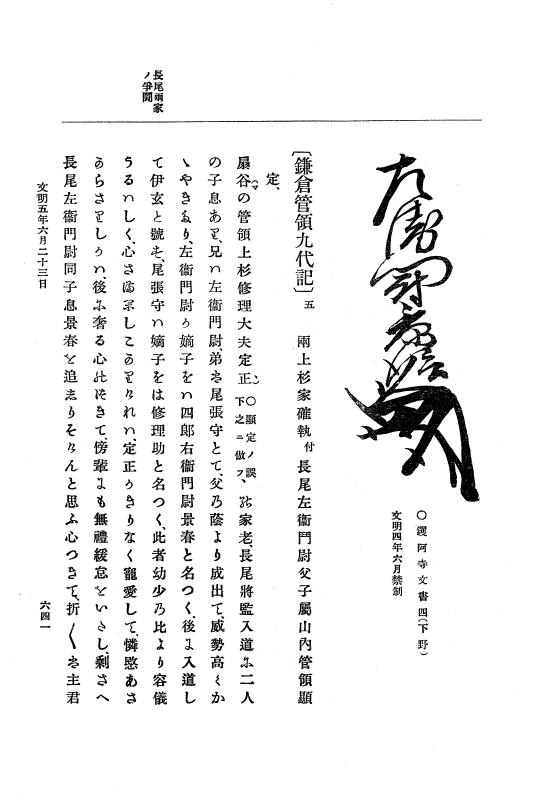 長尾兩家
ノ爭鬪
左衞門尉景信
〇鑁阿寺文書四(下野)
文明四年六月禁制
〔鎌倉管領九代記〕五 兩上杉家確執付長尾左衞門尉父子屬山内管領顯
定、
扇谷の管領上杉修理大夫定正〇顯定ノ誤、下之ニ倣フ、か家老、長尾將監入道に二人
の子息あり、兄ハ左衞門尉、弟を尾張守とて、父乃蔭より成出て、威勢高くか
ゝやきたり、左衞門尉か嫡子をハ四郎右衞門尉景春と名つく、後に入道し
て伊玄と號す、尾張守ハ嫡子をは修理助と名つく、此者幼少乃比より容儀
うるハしく、心さましこかりけれハ、定正かきりなく寵愛して、憐愍あさ
からさりしかハ、後に奢る心出きて、傍輩にも無禮緩怠をいたし、剩さへ
長尾左衞門尉同子息景春を追しりそけんと思ふ心つきて、折〱を主君
文明五年六月二十三日
六四一